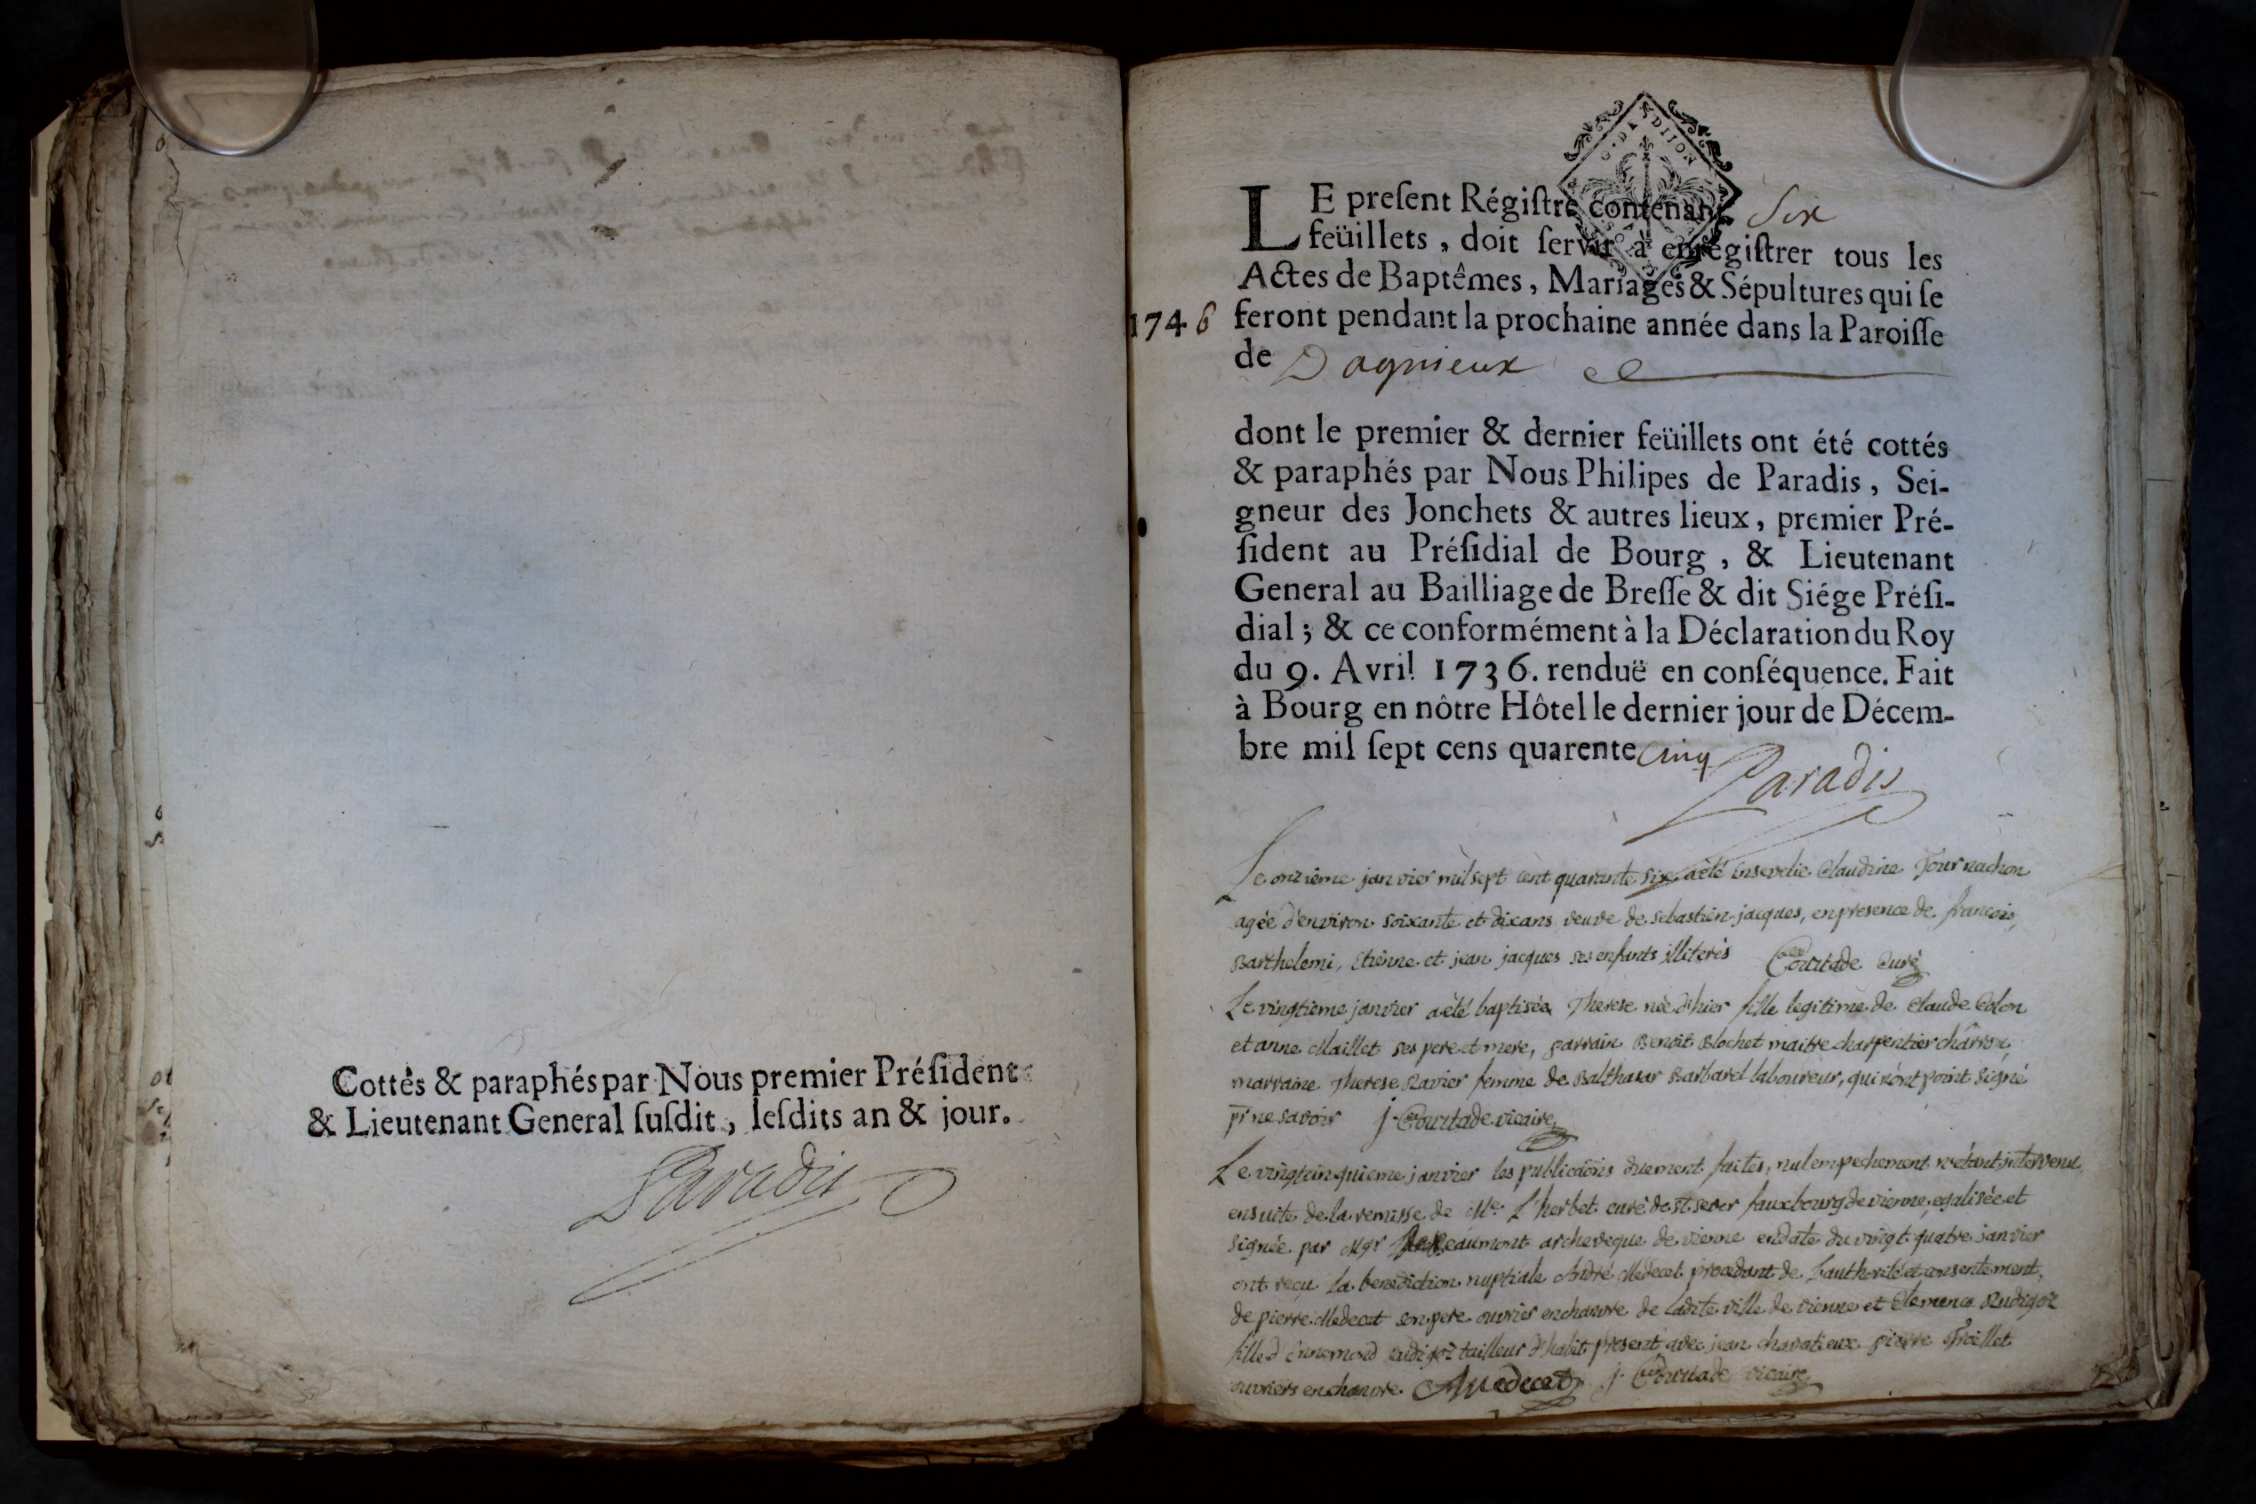 Cottés & paraphés par Nous premier Préſident
& Lieutenant General ſuſdit, leſdits an & jour.
Paradis
G. DE DIJON
LE preſent Régiſtre contenant Six
feüillets, doit ſervir à enrégiſtrer tous les
Actes de Baptêmes, Mariages & Sépultures qui ſe
1746 feront pendant la prochaine année dans la Paroiſſe
de Dagnieux
dont le premier & dernier feüillets ont été cottés
& paraphés par Nous Philipes de Paradis, Sei-
gneur des Jonchets & autres lieux, premier Pré-
ſident au Préſidial de Bourg, & Lieutenant
General au Bailliage de Breſſe & dit Siége Préſi-
dial; & ce conformément à la Déclaration du Roy
du 9. Avril 1736. renduë en conſéquence. Fait
à Bourg en nôtre Hôtel le dernier jour de Décem-
bre mil ſept cens quarente Cinq
Paradis
Le onzieme janvier mil sept cent quarante six a été ensevelie Claudine Tournachon
agée d'environ soixante et dix ans veuve de sebastien jacques, en presence de françois,
Barthelemi, Etienne et jean jacques ses enfants illiterés Courtade Curé
Le vingtieme janvier a été baptisée Therese née d'hier fille legitime de Claude Colon
et anne Maillet ses pere et mere, parrain Benoit Blochet maitre charpentier
marraine Therese Ravier femme de Balthasar Barbarel laboureur, qui n'ont point signé
pr ne savoir j. Courtade vicaire
Le vingtcinquieme janvier les publications duement faites, nul empechement n'etant intervenu
ensuite de la remisse de Mr. L'herbet curé de st. sever fauxbourg de vienne, egalisée et
signée par Mgr Beaumont archeveque de vienne en date du vingt quatre janvier
ont reçu la benediction nuptiale André Medecet procedant de L'authorité et consentement
de pierre Medecet son pere ouvrier en chanvre de ladite ville de vienne et Clemence Rudigoz
fille d'Ennemond rudigoz tailleur d'habit present avec jean pierre
ouvriers en chanvre. A Medecet j. Courtade vicaire